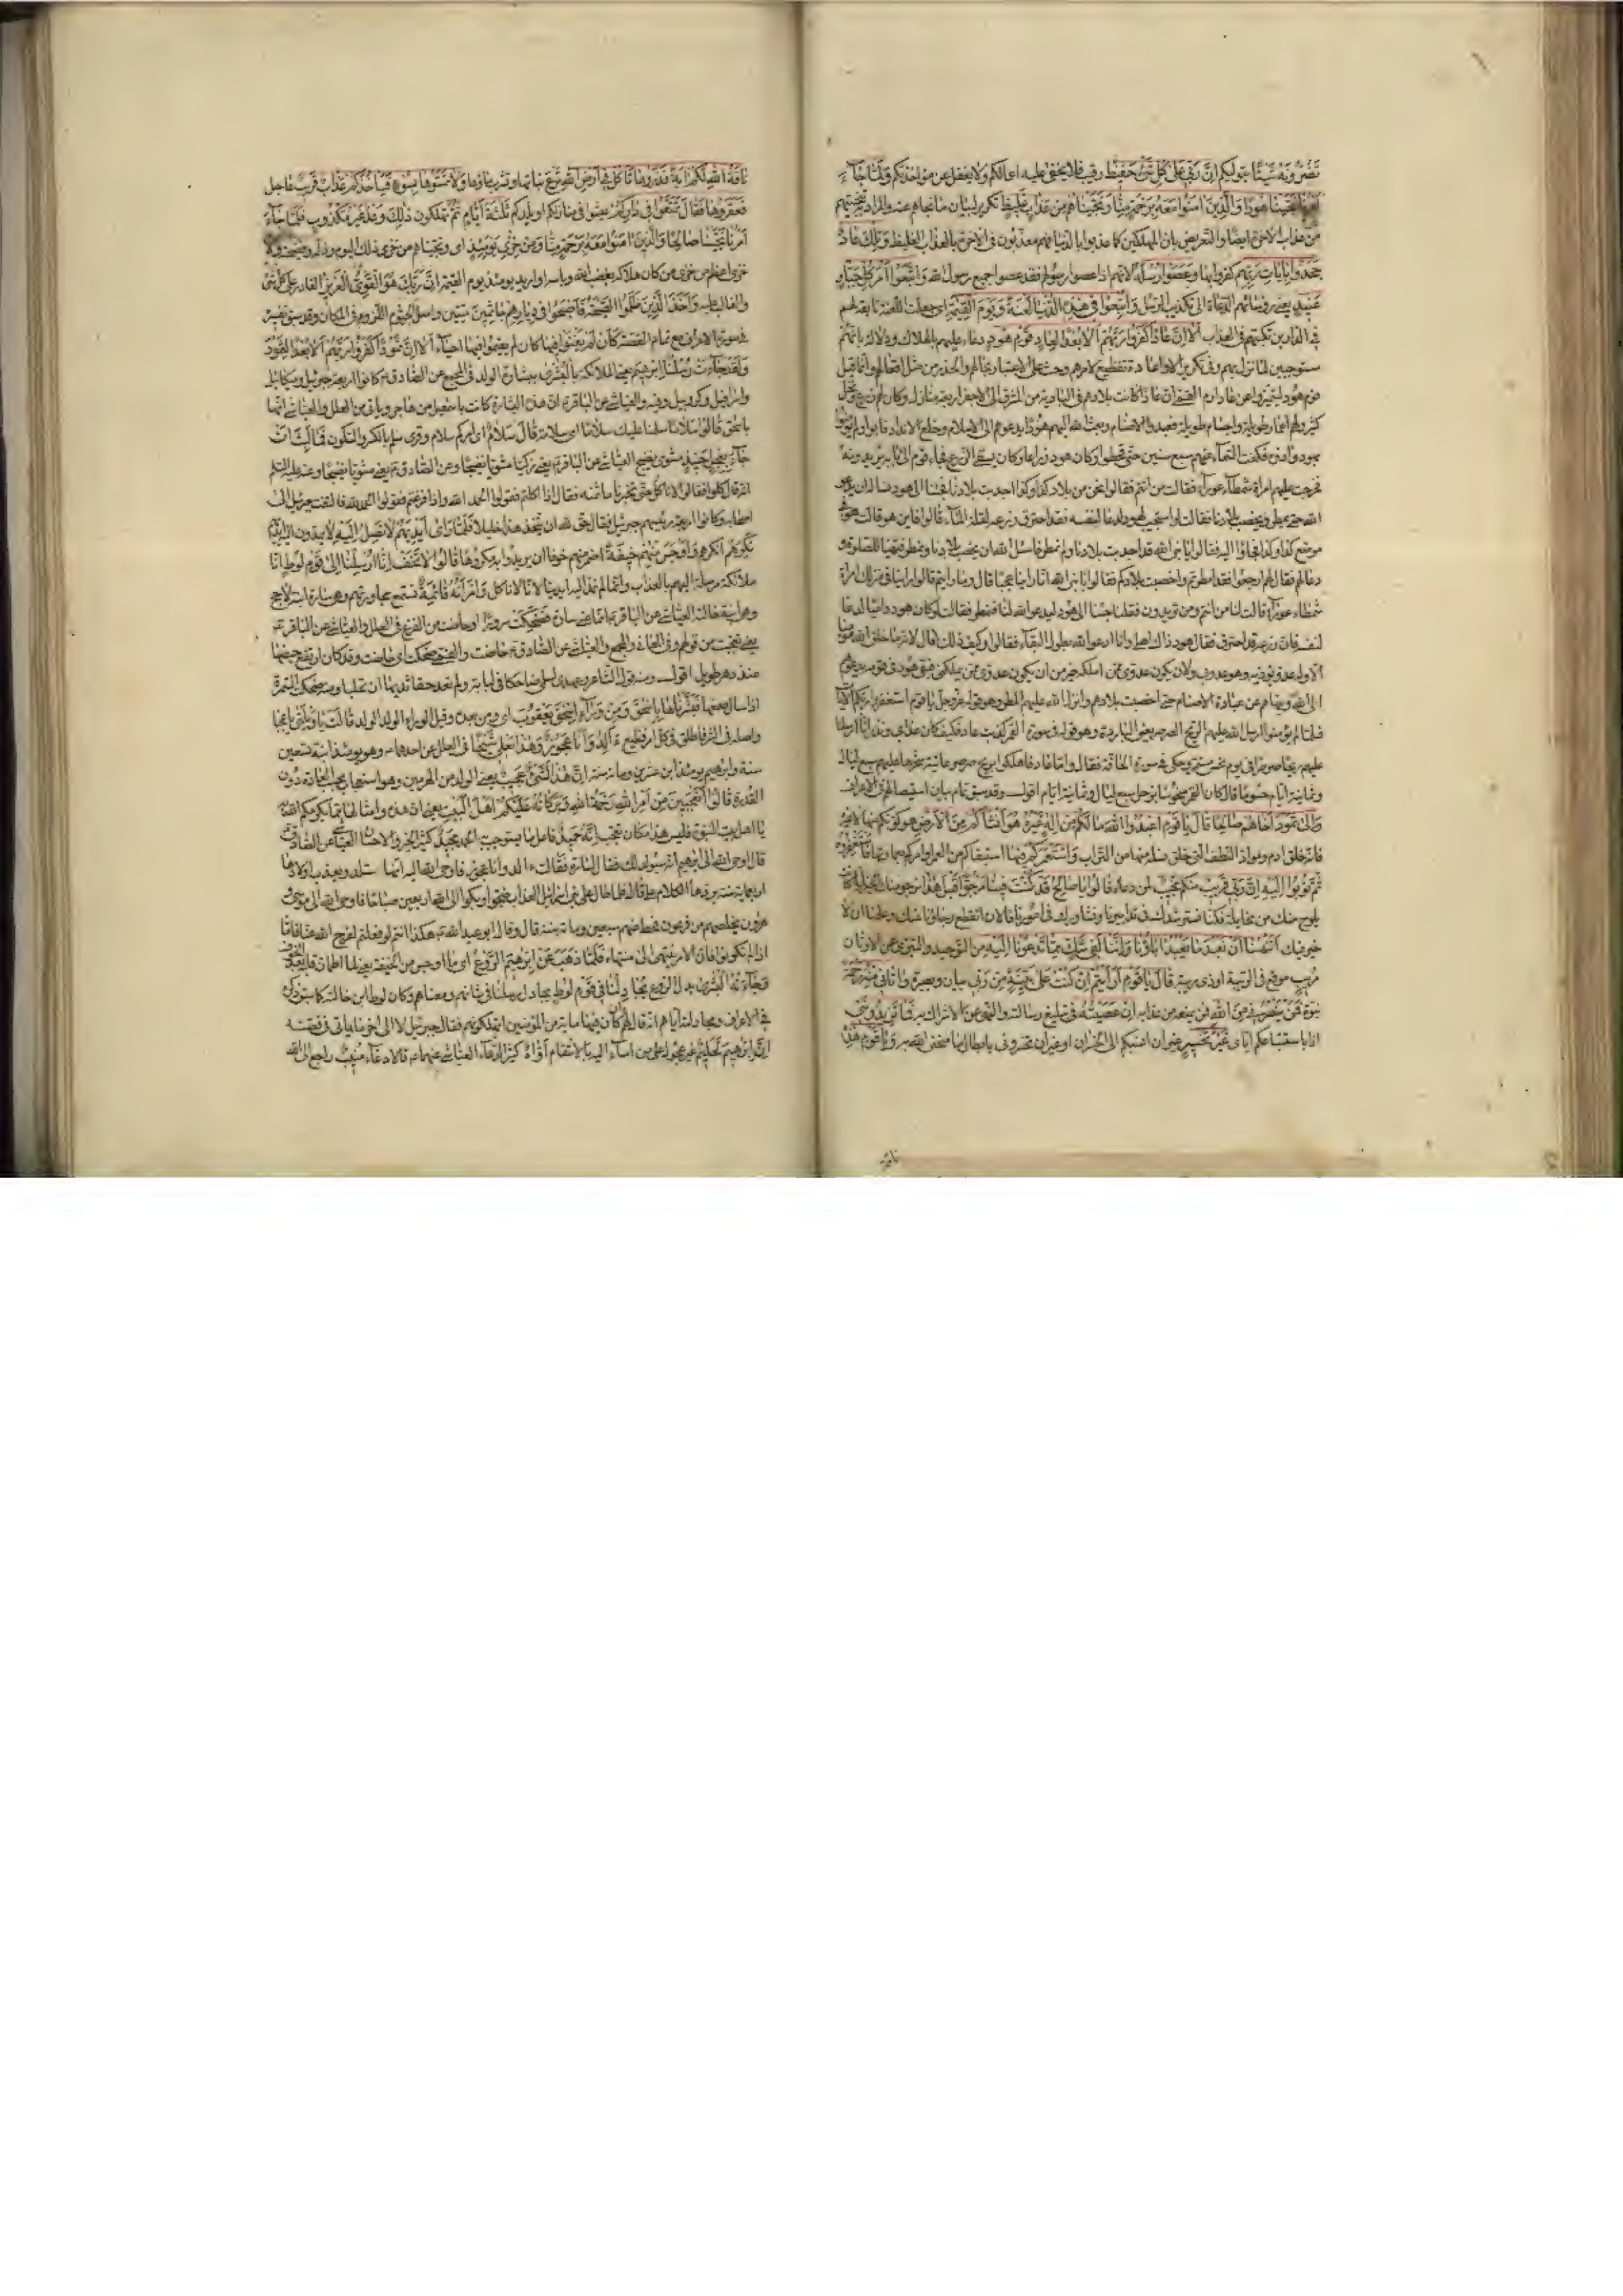 تَضُرُّونَهُ شَيْئًا بتوليكم إِنَّ رَبِّي عَلَىٰ كُلِّ شَيْءٍ حَفِيظٌ رقيب فلا يخفى عليه اعمالكم ولا يغفل عن مؤاخذتكم وَلَمَّا جَاءَ
أَمْرُنَا نَجَّيْنَا هُودًا وَالَّذِينَ آمَنُوا مَعَهُ بِرَحْمَةٍ مِنَّا وَنَجَّيْنَاهُمْ مِنْ عَذَابٍ غَلِيظٍ تكرير لبيان ما نجاهم عنه والمراد تنجيتهم
من عذاب الاخرة ايضا والتعريض بان المهلكين كما عذبوا في الدنيا فهم معذبون في الاخرة بالعذاب الغليظ وَتِلْكَ عَادٌ
جَحَدُوا بِآيَاتِ رَبِّهِمْ كفروا بها وَعَصَوْا رُسُلَهُ لانهم اذا عصوا رسولهم فقد عصوا جميع رسول الله وَاتَّبَعُوا أَمْرَ كُلِّ جَبَّارٍ
عَنِيدٍ يعني رؤسائهم الدعاة الى تكذيب الرسل وَأُتْبِعُوا فِي هَٰذِهِ الدُّنْيَا لَعْنَةً وَيَوْمَ الْقِيَامَةِ اي جعلت اللعنة تابعة لهم
في الدارين تكبهم في العذاب أَلَا إِنَّ عَادًا كَفَرُوا رَبَّهُمْ أَلَا بُعْدًا لِعَادٍ قَوْمِ هُودٍ دعاء عليهم بالهلاك ودلالة بانهم
مستوجبين لما نزل بهم وفي تكرير الا واعادة عاد تفظيع لامرهم وحث على الاعتبار بحالهم والحذر من مثل افعالهم وانما قيل
قوم هود ليتميزوا عن عاد ارم القمي ان عادا كانت بلادهم في البادية من المشرق الى الاجفر اربعة منازل وكان لهم زرع ونخل
كثير ولهم اعمار طويلة واجسام طويلة فعبدوا الاصنام وبعث الله اليهم هودا يدعوهم الى الاسلام وخلع الانداد فابوا ولم يؤمنوا
بهود وآذوه فكفت السماء عنهم سبع سنين حتى قحطوا وكان هود زراعا وكان يسقي الزرع فجاء قوم الى بابه يريدونه
فخرجت عليهم امرأة شمطاء عوراء فقالت من انتم فقالوا نحن من بلاد كذا وكذا اجدبت بلادنا فجئنا الى هود نساله ان يدعو
الله حتى يمطر ويخصب بلادنا فقالت لو استجيب لهود لدعا لنفسه فقد احترق زرعه لقلة الماء قالوا فاين هو قالت هو في
موضع كذا وكذا فجاؤا اليه فقالوا يا نبي الله قد اجدبت بلادنا ولم نمطر فاسئل الله ان يخصب بلادنا ونمطر فتهيا للصلوة وصلى
ودعا لهم فقال لهم ارجعوا فقد امطرتم واخصبت بلادكم فقالوا يا نبي الله انا راينا عجبا قال وما رايتم قالوا راينا في منزلك امرأة
شمطاء عوراء قالت لنا من انتم ومن تريدون فقلنا جئنا الى هود ليدعو الله لنا فنمطر فقالت لو كان هود داعيا لدعا
لنفسه فان زرعه قد احترق فقال هود ذاك اهلي وانا ادعو الله بطول البقاء فقالوا وكيف ذلك قال لانه ما خلق الله مؤمنا
الا وله عدو يؤذيه وهو عدوي ولان يكون عدوي ممن املكه خير من ان يكون عدوي ممن يملكني فبقي هود في قومه يدعوهم
الى الله وينهاهم عن عبادة الاصنام حتى اخصبت بلادهم وانزل الله عليهم المطر وهو قوله عز وجل يا قوم استغفروا ربكم الآية
فلما لم يؤمنوا ارسل الله عليهم الريح الصرصر يعني الباردة وهو قوله في سورة القمر كذبت عاد فكيف كان عذابي ونذر انا ارسلنا
عليهم ريحا صرصرا في يوم نحس مستمر وحكى في سورة الحاقة فقال واما عاد فاهلكوا بريح صرصر عاتية سخرها عليهم سبع ليال
وثمانية ايام حسوما قال كان القمر منحوسا بزحل سبع ليال وثمانية ايام اقول وقد سبق تمام بيان استيصالهم في الاعراف
وَإِلَىٰ ثَمُودَ أَخَاهُمْ صَالِحًا قَالَ يَا قَوْمِ اعْبُدُوا اللَّهَ مَا لَكُمْ مِنْ إِلَٰهٍ غَيْرُهُ هُوَ أَنْشَأَكُمْ مِنَ الْأَرْضِ هو كونكم منها لا غيره
فانه خلق ادم ومواد النطف التي خلق نسله منها من التراب وَاسْتَعْمَرَكُمْ فِيهَا استبقاكم من العمر او امركم بعمارتها فَاسْتَغْفِرُوهُ
ثُمَّ تُوبُوا إِلَيْهِ إِنَّ رَبِّي قَرِيبٌ منكم مُجِيبٌ لمن دعاه قَالُوا يَا صَالِحُ قَدْ كُنْتَ فِينَا مَرْجُوًّا قَبْلَ هَٰذَا نرجو منك الخير لما كانت
يلوح منك من مخايله فكنا نسترشدك في تدابيرنا ونشاورك في امورنا فالان انقطع رجاؤنا عنك وعلمنا ان لا
خير فيك أَتَنْهَانَا أَنْ نَعْبُدَ مَا يَعْبُدُ آبَاؤُنَا وَإِنَّنَا لَفِي شَكٍّ مِمَّا تَدْعُونَا إِلَيْهِ من التوحيد والتبري عن الاوثان
مُرِيبٍ موقع في الريبة او ذي ريبة قَالَ يَا قَوْمِ أَرَأَيْتُمْ إِنْ كُنْتُ عَلَىٰ بَيِّنَةٍ مِنْ رَبِّي بيان وبصيرة وَآتَانِي مِنْهُ رَحْمَةً
نبوة فَمَنْ يَنْصُرُنِي مِنَ اللَّهِ فمن يمنعني من عذابه إِنْ عَصَيْتُهُ في تبليغ رسالته والنهي عن الاشراك به فَمَا تَزِيدُونَنِي
اذا باستتباعكم اياي غَيْرَ تَخْسِيرٍ غير ان انسبكم الى الخسران او غير ان تخسروني بابطال ما منحني الله به وَيَا قَوْمِ هَٰذِهِ
ناقة
نَاقَةُ اللَّهِ لَكُمْ آيَةً فَذَرُوهَا تَأْكُلْ فِي أَرْضِ اللَّهِ ترع نباتها وتشرب ماؤها وَلَا تَمَسُّوهَا بِسُوءٍ فَيَأْخُذَكُمْ عَذَابٌ قَرِيبٌ عاجل
فَعَقَرُوهَا فَقَالَ تَمَتَّعُوا فِي دَارِكُمْ عيشوا في منازلكم او بلدكم ثَلَاثَةَ أَيَّامٍ ثم تهلكون ذَٰلِكَ وَعْدٌ غَيْرُ مَكْذُوبٍ فَلَمَّا جَاءَ
أَمْرُنَا نَجَّيْنَا صَالِحًا وَالَّذِينَ آمَنُوا مَعَهُ بِرَحْمَةٍ مِنَّا وَمِنْ خِزْيِ يَوْمِئِذٍ اي ونجيناهم من خزي ذلك اليوم وذله وفضيحته ولا
خزي اعظم من خزي من كان هلاكه بغضب الله وباسه او اريد يومئذ يوم القيمة إِنَّ رَبَّكَ هُوَ الْقَوِيُّ الْعَزِيزُ القادر على كل شيء
والغالب عليه وَأَخَذَ الَّذِينَ ظَلَمُوا الصَّيْحَةُ فَأَصْبَحُوا فِي دِيَارِهِمْ جَاثِمِينَ ميتين واصل الجثوم اللزوم في المكان وقد سبق تفسيره
في سورة الاعراف مع تمام القصة كَأَنْ لَمْ يَغْنَوْا فِيهَا كان لم يقيموا فيها احياء أَلَا إِنَّ ثَمُودَ كَفَرُوا رَبَّهُمْ أَلَا بُعْدًا لِثَمُودَ
وَلَقَدْ جَاءَتْ رُسُلُنَا إِبْرَاهِيمَ يعني الملائكة بِالْبُشْرَىٰ ببشارة الولد في المجمع عن الصادق ع كانوا اربعة جبرئيل وميكائيل
واسرافيل وكروبيل وفيه والعياشي عن الباقر ع ان هذه البشارة كانت باسمعيل من هاجر وياتي من العلل والعياشي انها
باسحق قَالُوا سَلَامًا سلمنا عليك سلاما اي سلامة قَالَ سَلَامٌ اي امركم سلام وقرئ سلم بالكسر والسكون فَمَا لَبِثَ أَنْ
جَاءَ بِعِجْلٍ حَنِيذٍ مشوي نضيج العياشي عن الباقر ع يعني زكيا مشويا نضيجا وعن الصادق ع يعني مشويا نضيجا وعنه عليه السلم
انه قال كلوا فقالوا لا ناكل حتى تخبرنا ما ثمنه فقال اذا اكلتم فقولوا بسم الله واذا فرغتم فقولوا الحمد لله قال فالتفت جبرئيل الى
اصحابه وكانوا اربعة رئيسهم جبرئيل فقال حق لله ان يتخذ هذا خليلا فَلَمَّا رَأَىٰ أَيْدِيَهُمْ لَا تَصِلُ إِلَيْهِ لا يمدون اليه ايديهم
نَكِرَهُمْ انكرهم وَأَوْجَسَ مِنْهُمْ خِيفَةً اضمر منهم خوفا ان يريدوا به مكروها قَالُوا لَا تَخَفْ إِنَّا أُرْسِلْنَا إِلَىٰ قَوْمِ لُوطٍ انا
ملائكة مرسلة اليهم بالعذاب وانما لم نمد اليه ايدينا لانا لا ناكل وَامْرَأَتُهُ قَائِمَةٌ تستمع محاورتهم وهي سارة ابنة لاحج
وهي ابنة خالته العياشي عن الباقر ع انما عنى سارة فَضَحِكَتْ سرورا او حاضت من الفزع في العلل والعياشي عن الباقر ع
يعني تعجبت من قولهم وفي المعاني والمجمع والعياشي عن الصادق ع حاضت والقمي ضحكت اي حاضت وقد كان ارتفع حيضها
منذ دهر طويل اقول ومنه قول الشاعر وعهدي بسلمى ضاحكا في لبابة ولم تعد حقا ثديها ان تحلما ومنه ضحكت السمرة
اذا سال صمغها فَبَشَّرْنَاهَا بِإِسْحَاقَ وَمِنْ وَرَاءِ إِسْحَاقَ يَعْقُوبَ اي ومن بعده وقيل الوراء ولد الولد قَالَتْ يَا وَيْلَتَىٰ يا عجبا
واصله في الشر فاطلق في كل امر فظيع أَأَلِدُ وَأَنَا عَجُوزٌ وَهَٰذَا بَعْلِي شَيْخًا في العلل عن احدهما ع وهي يومئذ ابنة تسعين
سنة وابرهيم يومئذ ابن عشرين ومائة سنة إِنَّ هَٰذَا لَشَيْءٌ عَجِيبٌ يعني الولد من الهرمين وهو استعجاب بحسب العادة دون
القدرة قَالُوا أَتَعْجَبِينَ مِنْ أَمْرِ اللَّهِ رَحْمَتُ اللَّهِ وَبَرَكَاتُهُ عَلَيْكُمْ أَهْلَ الْبَيْتِ يعني ان هذه وامثالها مما يكرمكم الله به
يا اهل بيت النبوة فليس هذا مكان تعجب إِنَّهُ حَمِيدٌ فاعل ما يستوجب به الحمد مَجِيدٌ كثير الخير والاحسان العياشي عن الصادق ع
قال اوحى الله الى ابرهيم انه سيولد لك فقال لسارة فقالت ءالد وانا عجوز فاوحى الله اليه انها ستلد ويعذب اولادها
اربعمائة سنة بردها الكلام علي قال فلما طال على بني اسرائيل العذاب ضجوا وبكوا الى الله اربعين صباحا فاوحى الله الى موسى و
هرون يخلصهم من فرعون فحط عنهم سبعين ومائة سنة قال وقال ابو عبد الله ع هكذا انتم لو فعلتم لفرج الله عنا فاما
اذا لم تكونوا فان الامر ينتهي الى منتهاه فَلَمَّا ذَهَبَ عَنْ إِبْرَاهِيمَ الرَّوْعُ اي ما اوجس من الخيفة يعني لما اطمان قلبه بعد الخوف
وَجَاءَتْهُ الْبُشْرَىٰ بدل الروع يُجَادِلُنَا فِي قَوْمِ لُوطٍ يجادل رسلنا في شانهم ومعناهم وكان لوط ابن خالته كما سبق ذكره
في الاعراف ومجادلته اياهم انه قال لهم ان كان فيها مائة من المؤمنين اتهلكونهم فقال جبرئيل لا الى اخر ما ياتي في قصته
إِنَّ إِبْرَاهِيمَ لَحَلِيمٌ غير عجول على من اساء اليه بالانتقام أَوَّاهٌ كثير الدعاء العياشي عنهما ع قالا دعاء مُنِيبٌ راجع الى الله